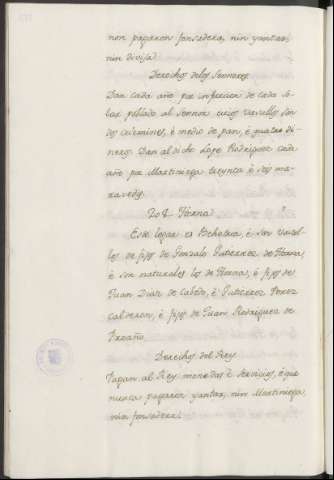 non pagaron fonsadera, nin yantar,
nin divisa.
Derechos delos Sennores
Dan cada año por infurcion de cada so-
lar poblado al Sennor cuios vasallos son
dos celemines, é medio de pan, é quatro di-
neros. Dan al dicho Lope Rodriguez cada
año por Martiniega treynta é seis ma-
ravedis.
Horna
Este logar es Behetria, é son vasal-
los de fijos de Gonzalo Gutierrez de Horna,
é son naturales los de Horna, é fijos de
Juan Diaz de é Gutierrez Perez
Calderon, é fijos de Juan Rodriguez de
Derechos del Rey
Pagan al Rey monedas é servicios, é que
nunca pagaron yantar, nin Martiniega,
nin fonsadera.